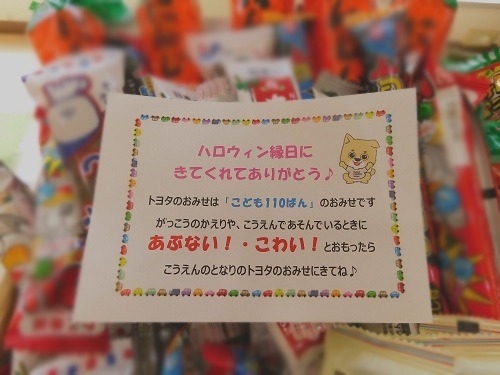 ハロウィン縁日に
きてくれてありがとう♪
トヨタのおみせは「こども110ばん」のおみせです
がっこうのかえりや、こうえんであそんでいるときに
あぶない！・こわい！とおもったら
こうえんのとなりのトヨタのおみせにきてね♪